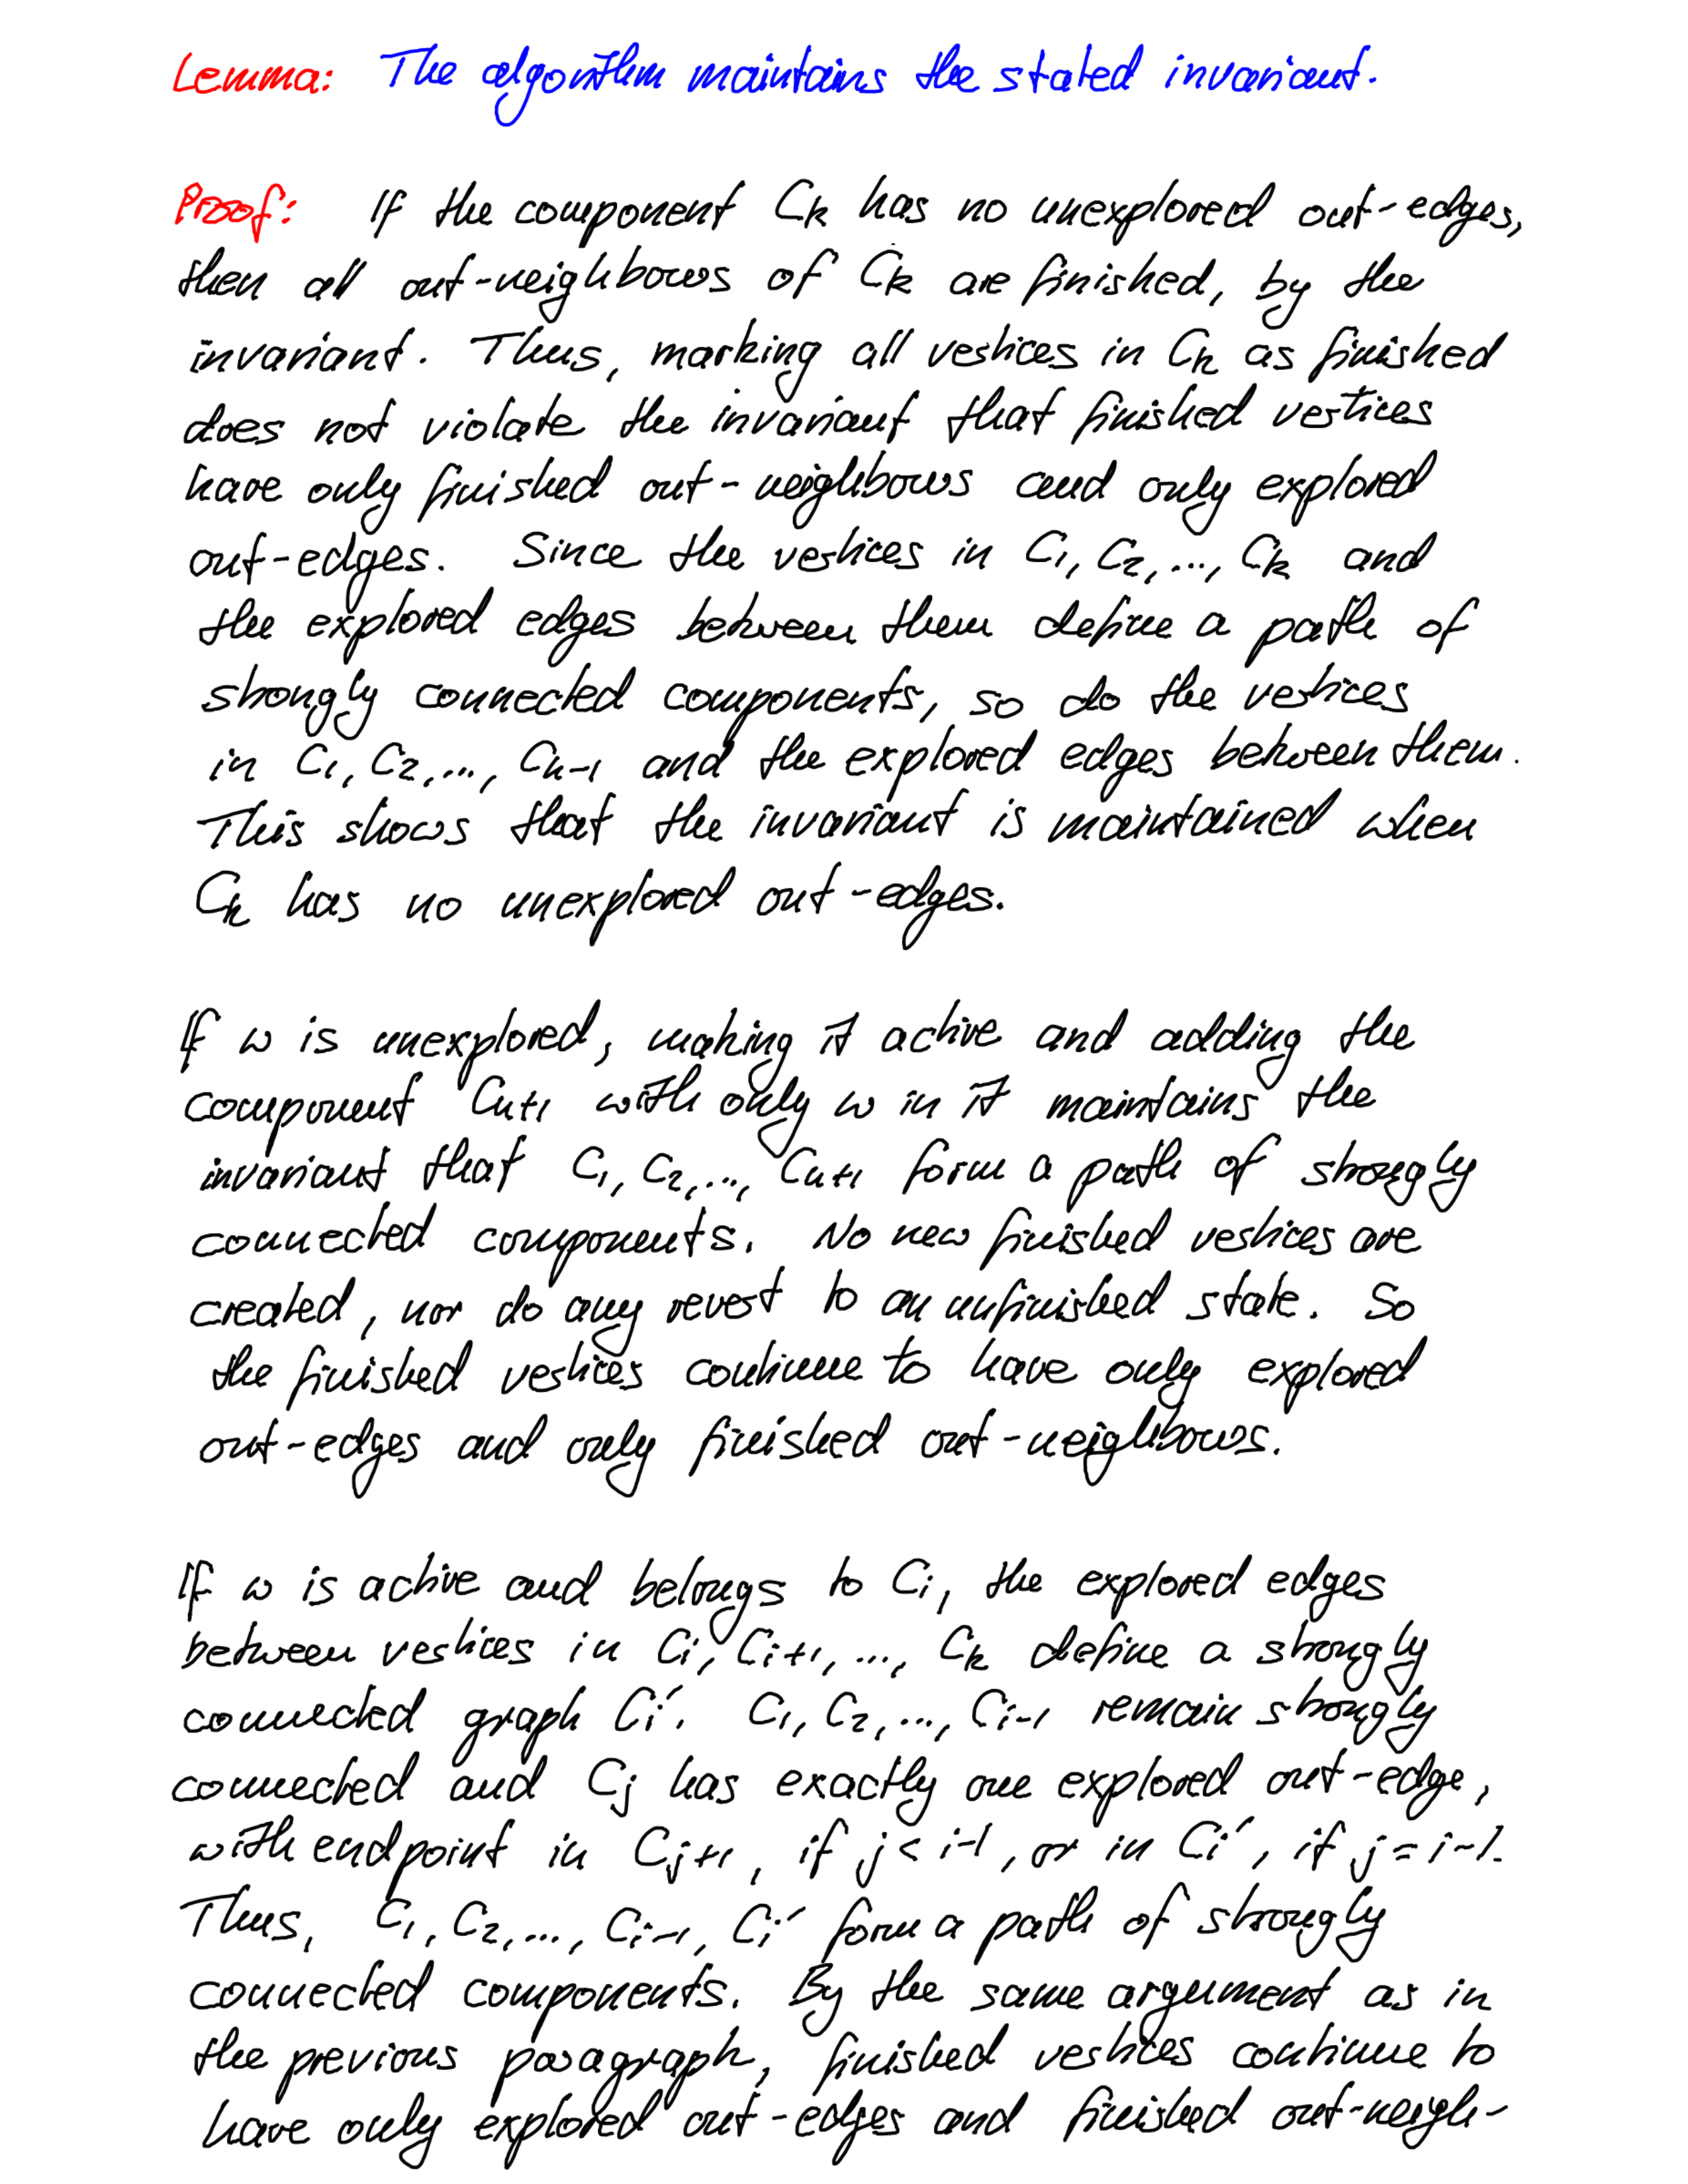 Lemma: The algorithm maintains the stated invariant.
Proof: If the component Ck has no unexplored out-edges,
then all out-neighbours of Ck are finished, by the
invariant. Thus, marking all vertices in Ck as finished
does not violate the invariant that finished vertices
have only finished out-neighbours and only explored
out-edges. Since the vertices in C1, C2, ..., Ck and
the explored edges between them define a path of
strongly connected components, so do the vertices
in C1, C2, ..., Ck-1 and the explored edges between them.
This shows that the invariant is maintained when
Ck has no unexplored out-edges.
If w is unexplored, making it active and adding the
component Ck+1 with only w in it maintains the
invariant that C1, C2, ..., Ck+1 form a path of strongly
connected components. No new finished vertices are
created, nor do any revert to an unfinished state. So
the finished vertices continue to have only explored
out-edges and only finished out-neighbours.
If w is active and belongs to Ci, the explored edges
between vertices in Ci, Ci+1, ..., Ck define a strongly
connected graph Ci'. C1, C2, ..., Ci-1 remain strongly
connected and Cj has exactly one explored out-edge,
with endpoint in Cj+1, if j < i-1, or in Ci', if j = i-1.
Thus, C1, C2, ..., Ci-1, Ci' form a path of strongly
connected components. By the same argument as in
the previous paragraph, finished vertices continue to
have only explored out-edges and finished out-neigh-